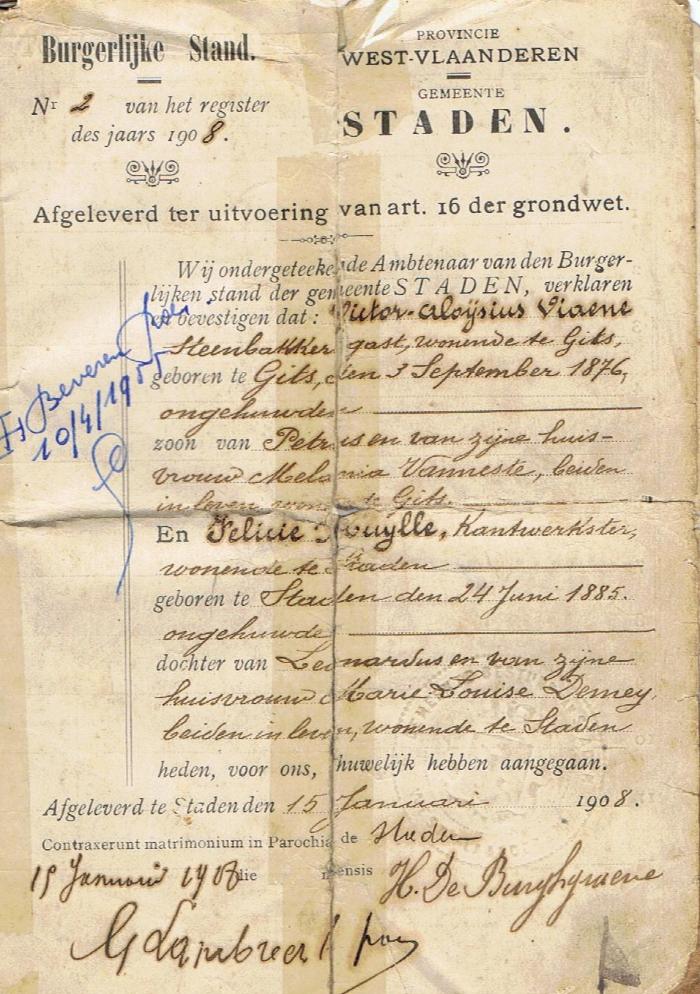 Burgerlijke Stand.
Nr 2 van het register
des jaars 1908.
PROVINCIE
WEST-VLAANDEREN
GEMEENTE
STADEN.
Afgeleverd ter uitvoering van art. 16 der grondwet.
Wij ondergeteekende Ambtenaar van den Burger-
lijken stand der gemeente STADEN, verklaren
en bevestigen dat: Victor-Aloÿsius Viaene
Steenbakkersgast, wonende te Gits,
geboren te Gits, den 3 September 1876,
ongehuwden
zoon van Petrus en van zijne huis-
vrouw Melania Vanneste, beiden
in leven wonende te Gits.
En Felicie, Kantwerkster,
wonende te Staden
geboren te Staden den 24 Juni 1885.
ongehuwde
dochter van Leonardus en van zijne
huisvrouw Marie-Louise Demey,
beiden in leven, wonende te Staden
heden, voor ons, huwelijk hebben aangegaan.
Afgeleverd te Staden den 15 Januari 1908.
Contraxerunt matrimonium in Parochia de Staden
15 Januarii 1908 die mensis
H. De Burghgraeve
Beveren
10/4/19